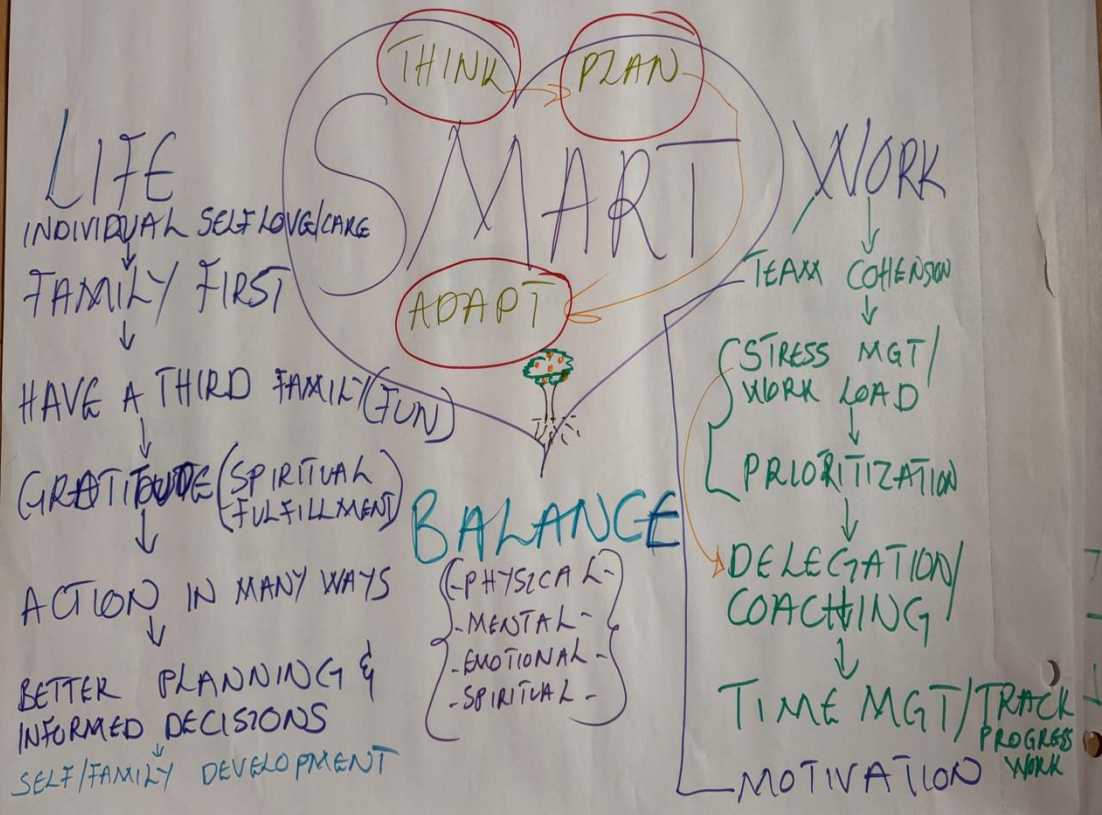 THINK
PLAN
SMART
ADAPT
LIFE
INDIVIDUAL SELF LOVE/CARE
FAMILY FIRST
HAVE A THIRD FAMILY (FUN)
GRATITUDE (SPIRITUAL
FULFILLMENT)
ACTION IN MANY WAYS
BETTER PLANNING &
INFORMED DECISIONS
SELF/FAMILY DEVELOPMENT
BALANCE
-PHYSICAL-
-MENTAL-
-EMOTIONAL-
-SPIRITUAL-
WORK
TEAM COHENSION
STRESS MGT/
WORK LOAD
PRIORITIZATION
DELEGATION/
COACHING
TIME MGT/TRACK
PROGRESS
WORK
MOTIVATION